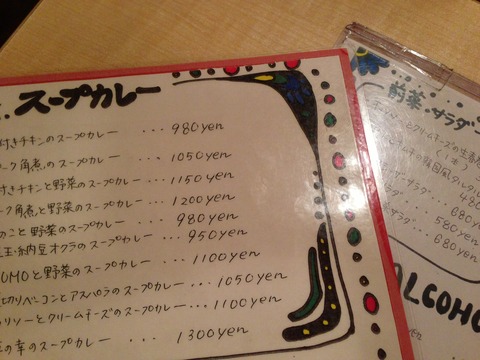 スープカレー
付きチキンのスープカレー ・・・ 980yen
ーク角煮のスープカレー ・・・ 1050yen
付きチキンと野菜のスープカレー ・・・ 1150yen
ーク角煮と野菜のスープカレー ・・・ 1200yen
のこと野菜のスープカレー ・・・ 980yen
玉・納豆オクラのスープカレー ・・・ 950yen
UMOと野菜のスープカレー ・・・ 1100yen
切りベーコンとアスパラのスープカレー ・・・ 1050yen
のリソーとクリームチーズのスープカレー ・・・ 1100yen
の幸のスープカレー ・・・ 1300yen
前菜・サラダ
とクリームチーズの生春
サラダ 480
ラダ 680
580yen
サラダ 680yen
ALCOHO